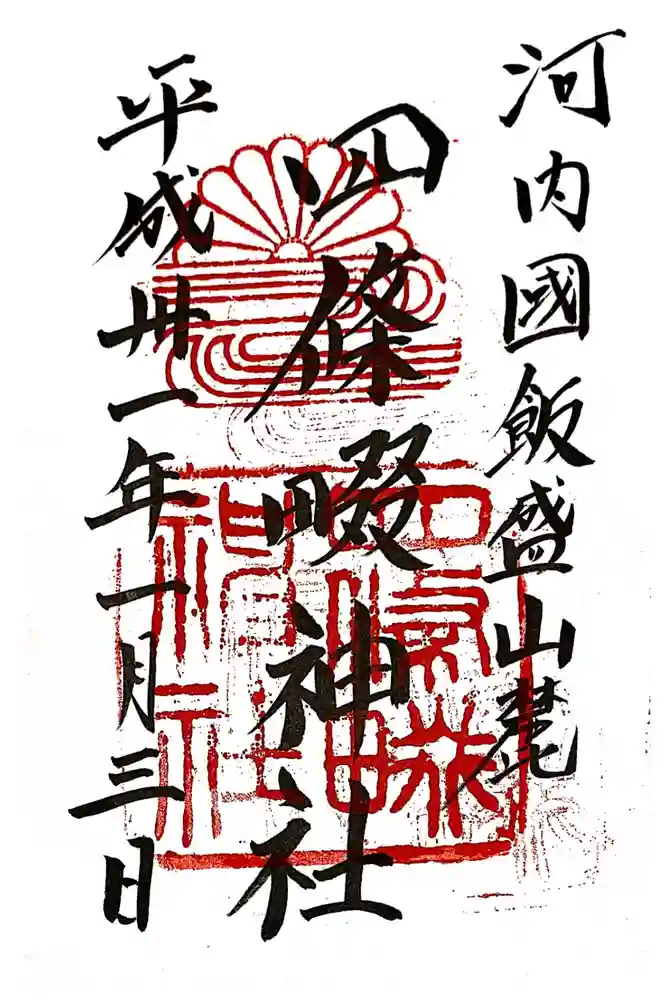 河内國飯盛山麓
四條畷神社
平成卅一年一月三日